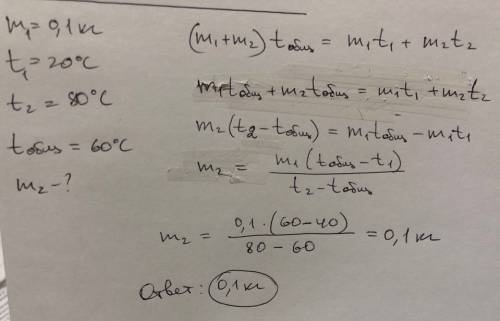 m₁ = 0,1 кг
t₁ = 20°C
t₂ = 80°C
tобщ = 60°C
m₂ - ?
(m₁ + m₂) tобщ = m₁t₁ + m₂t₂
m₁tобщ + m₂tобщ = m₁t₁ + m₂t₂
m₂(t₂ - tобщ) = m₁tобщ - m₁t₁
m₂ = m₁(tобщ - t₁) / t₂ - tобщ
m₂ = 0,1 · (60 - 40) / 80 - 60 = 0,1 кг
Ответ: 0,1 кг